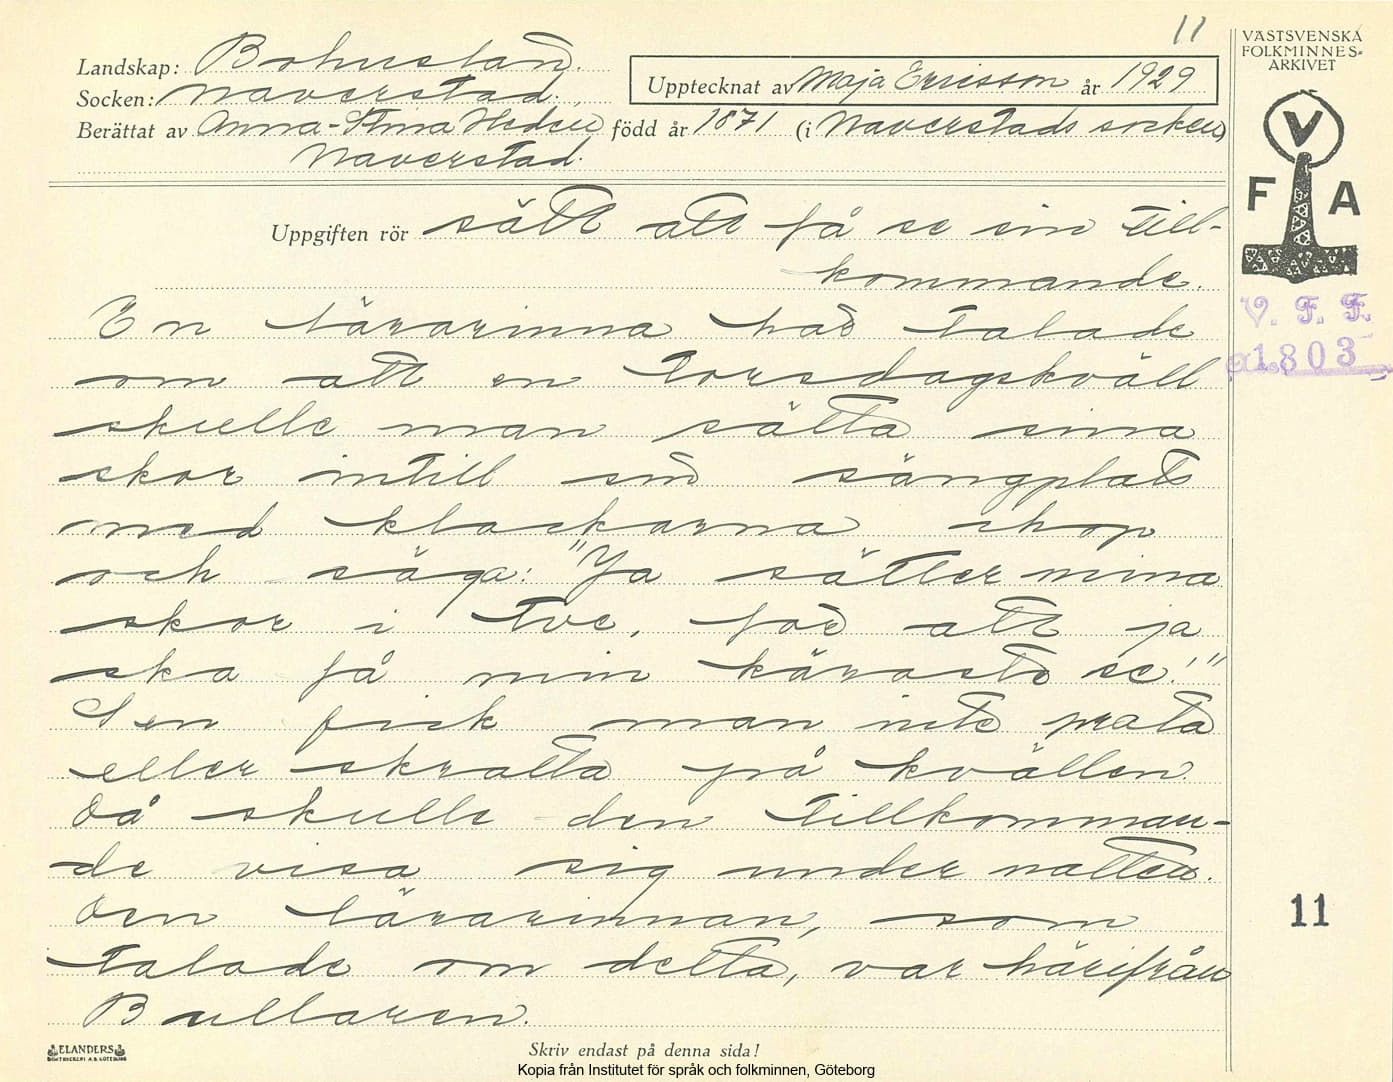 11
Landskap: Bohuslän.
Socken: Naverstad.
Upptecknat av Maja Ericsson år 1929
Berättat av Anna-Stina Hedén född år 1871 (i Naverstads socken)
Naverstad.
Uppgiften rör sätt att få se sin till-
kommande.
En lärarinna had talade
om att en torsdagskväll
skulle man sätta sina
skor intill sin sängplats
med klackarna ihop
och säga: "Ja sätter mina
skor i tve, för att ja
ska få min käraste se!"
Sen fick man inte prata
eller skratta på kvällen.
Då skulle den tillkomman-
de visa sig under natten.
Den lärarinnan, som
talade om detta, var härifrån
Bullaren.
VÄSTSVENSKA
FOLKMINNES-
ARKIVET
V
F A
V. F. F.
1803
11
ELANDERS
BOKTRYCKERI A.B. GÖTEBORG
Skriv endast på denna sida!
Kopia från Institutet för språk och folkminnen, Göteborg